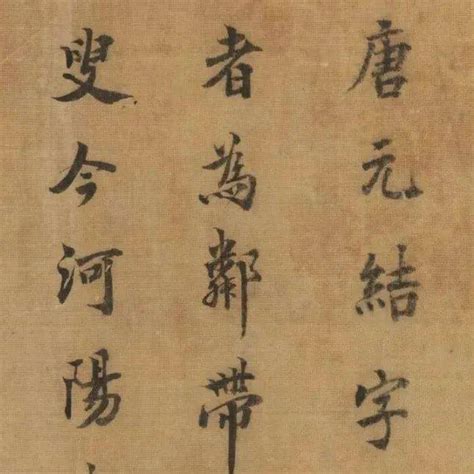 唐元結字
者為鄰帶
叟今河陽